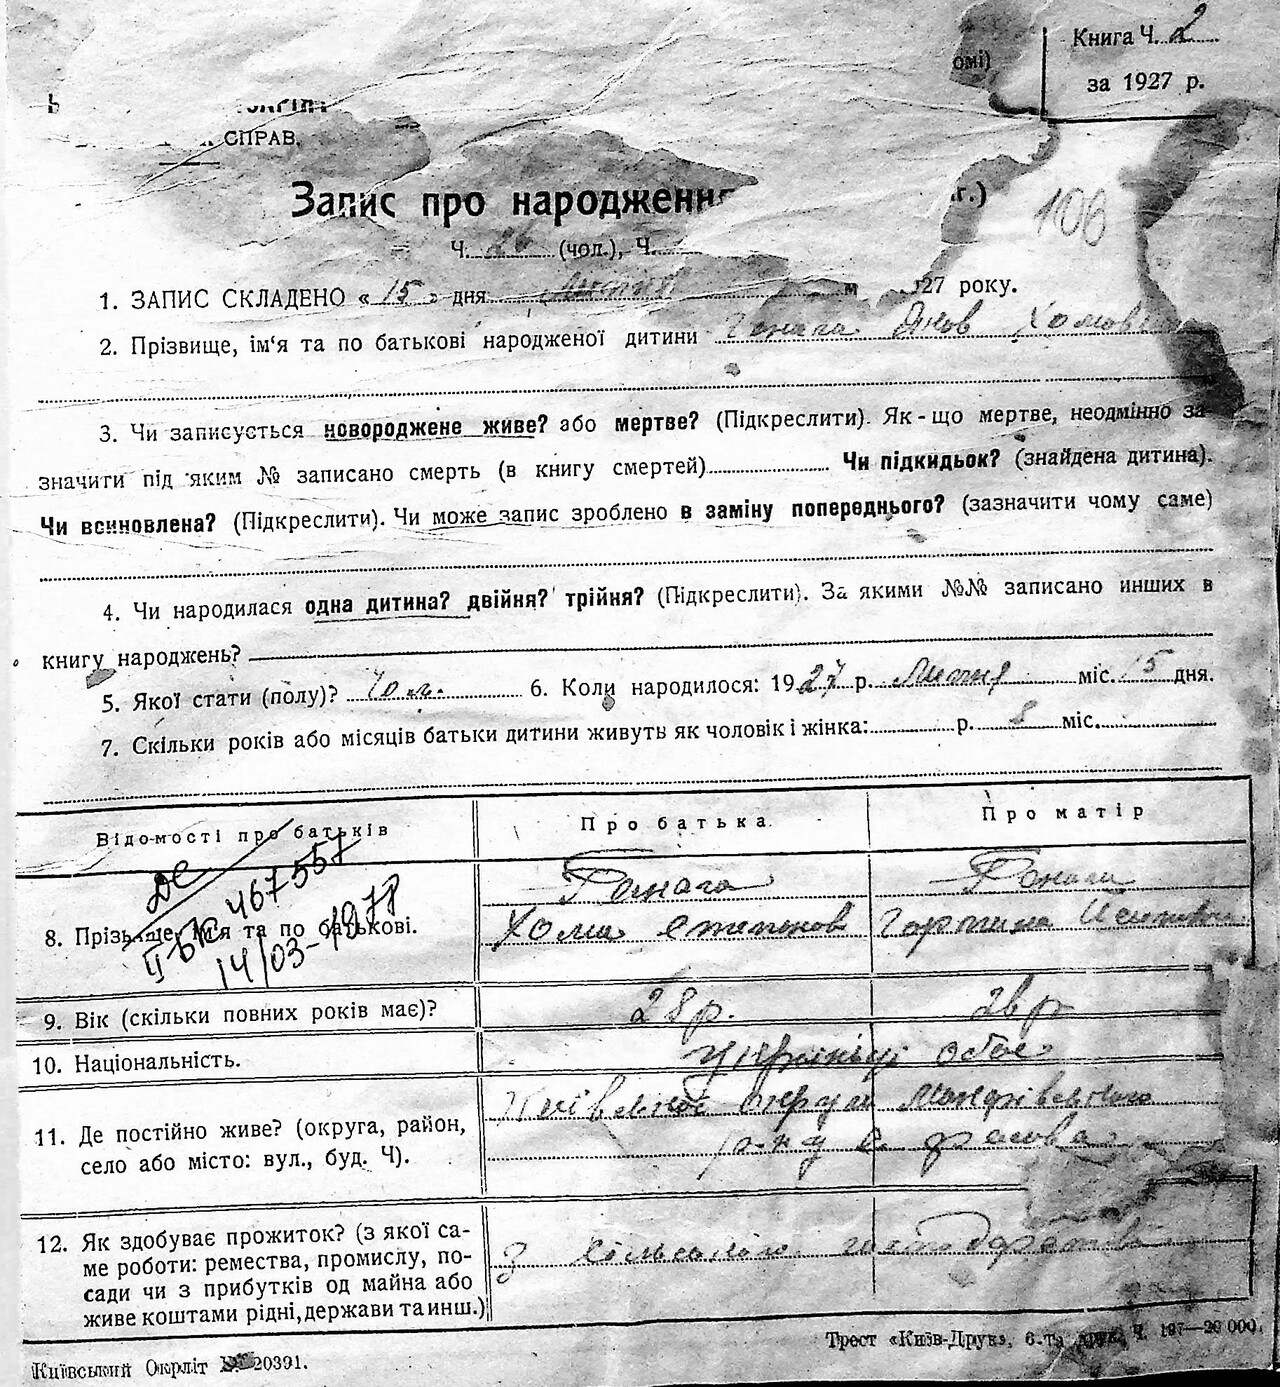 омі)
Книга Ч. 2
за 1927 р.
СПРАВ.
Запис про народженн г.)
106
Ч. (чол.), Ч.
1. ЗАПИС СКЛАДЕНО « 15 » дня Липня м 927 року.
2. Прізвище, ім‘я та по батькові народженої дитини Яков Хомов
3. Чи записується новороджене живе? або мертве? (Підкреслити). Як-що мертве, неодмінно за-
значити під яким № записано смерть (в книгу смертей) Чи підкидьок? (знайдена дитина).
Чи всиновлена? (Підкреслити). Чи може запис зроблено в заміну попереднього? (зазначити чому саме)
4. Чи народилася одна дитина? двійня? трійня? (Підкреслити). За якими №№ записано инших в
книгу народжень?
5. Якої стати (полу)? 6. Коли народилося: 1927 р. Липня міс. 15 дня.
7. Скільки років або місяців батьки дитини живуть як чоловік і жінка: р. 8 міс.
Відомості про батьків Про батька Про матір
467557
14/03-1978
8. Прізвище, ім‘я та по батькові.
Хома Степанов Горпина
9. Вік (скільки повних років має)? 28 р. 26 р
10. Національність. Українці обоє
11. Де постійно живе? (округа, район,
село або місто: вул., буд. Ч).
Київської округи
р-ну с
12. Як здобуває прожиток? (з якої са-
ме роботи: ремества, промислу, по-
сади чи з прибутків од майна або
живе коштами рідні, держави та инш.)
З сільського господарства
Київський Окрліт № 20391.
Трест «Київ-Друк», 6-та друк. Ч. 197—20 000.